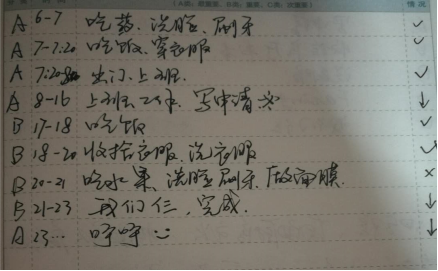 情况
A 6-7 吃药、洗脸、刷牙 ✓
A 7-7:20 吃饭、穿衣服 ✓
A 7:20 出门、上班. ✓
A 8-16 上班、工作、写申请 ↓
B 17-18 吃饭 ✓
B 18-20 收拾衣服、洗衣服 ✓
B 20-21 吃水果、洗脸刷牙、做面膜. ×
B 21-23 我们仨,完成. ↓
A 23… 呼呼 ↓